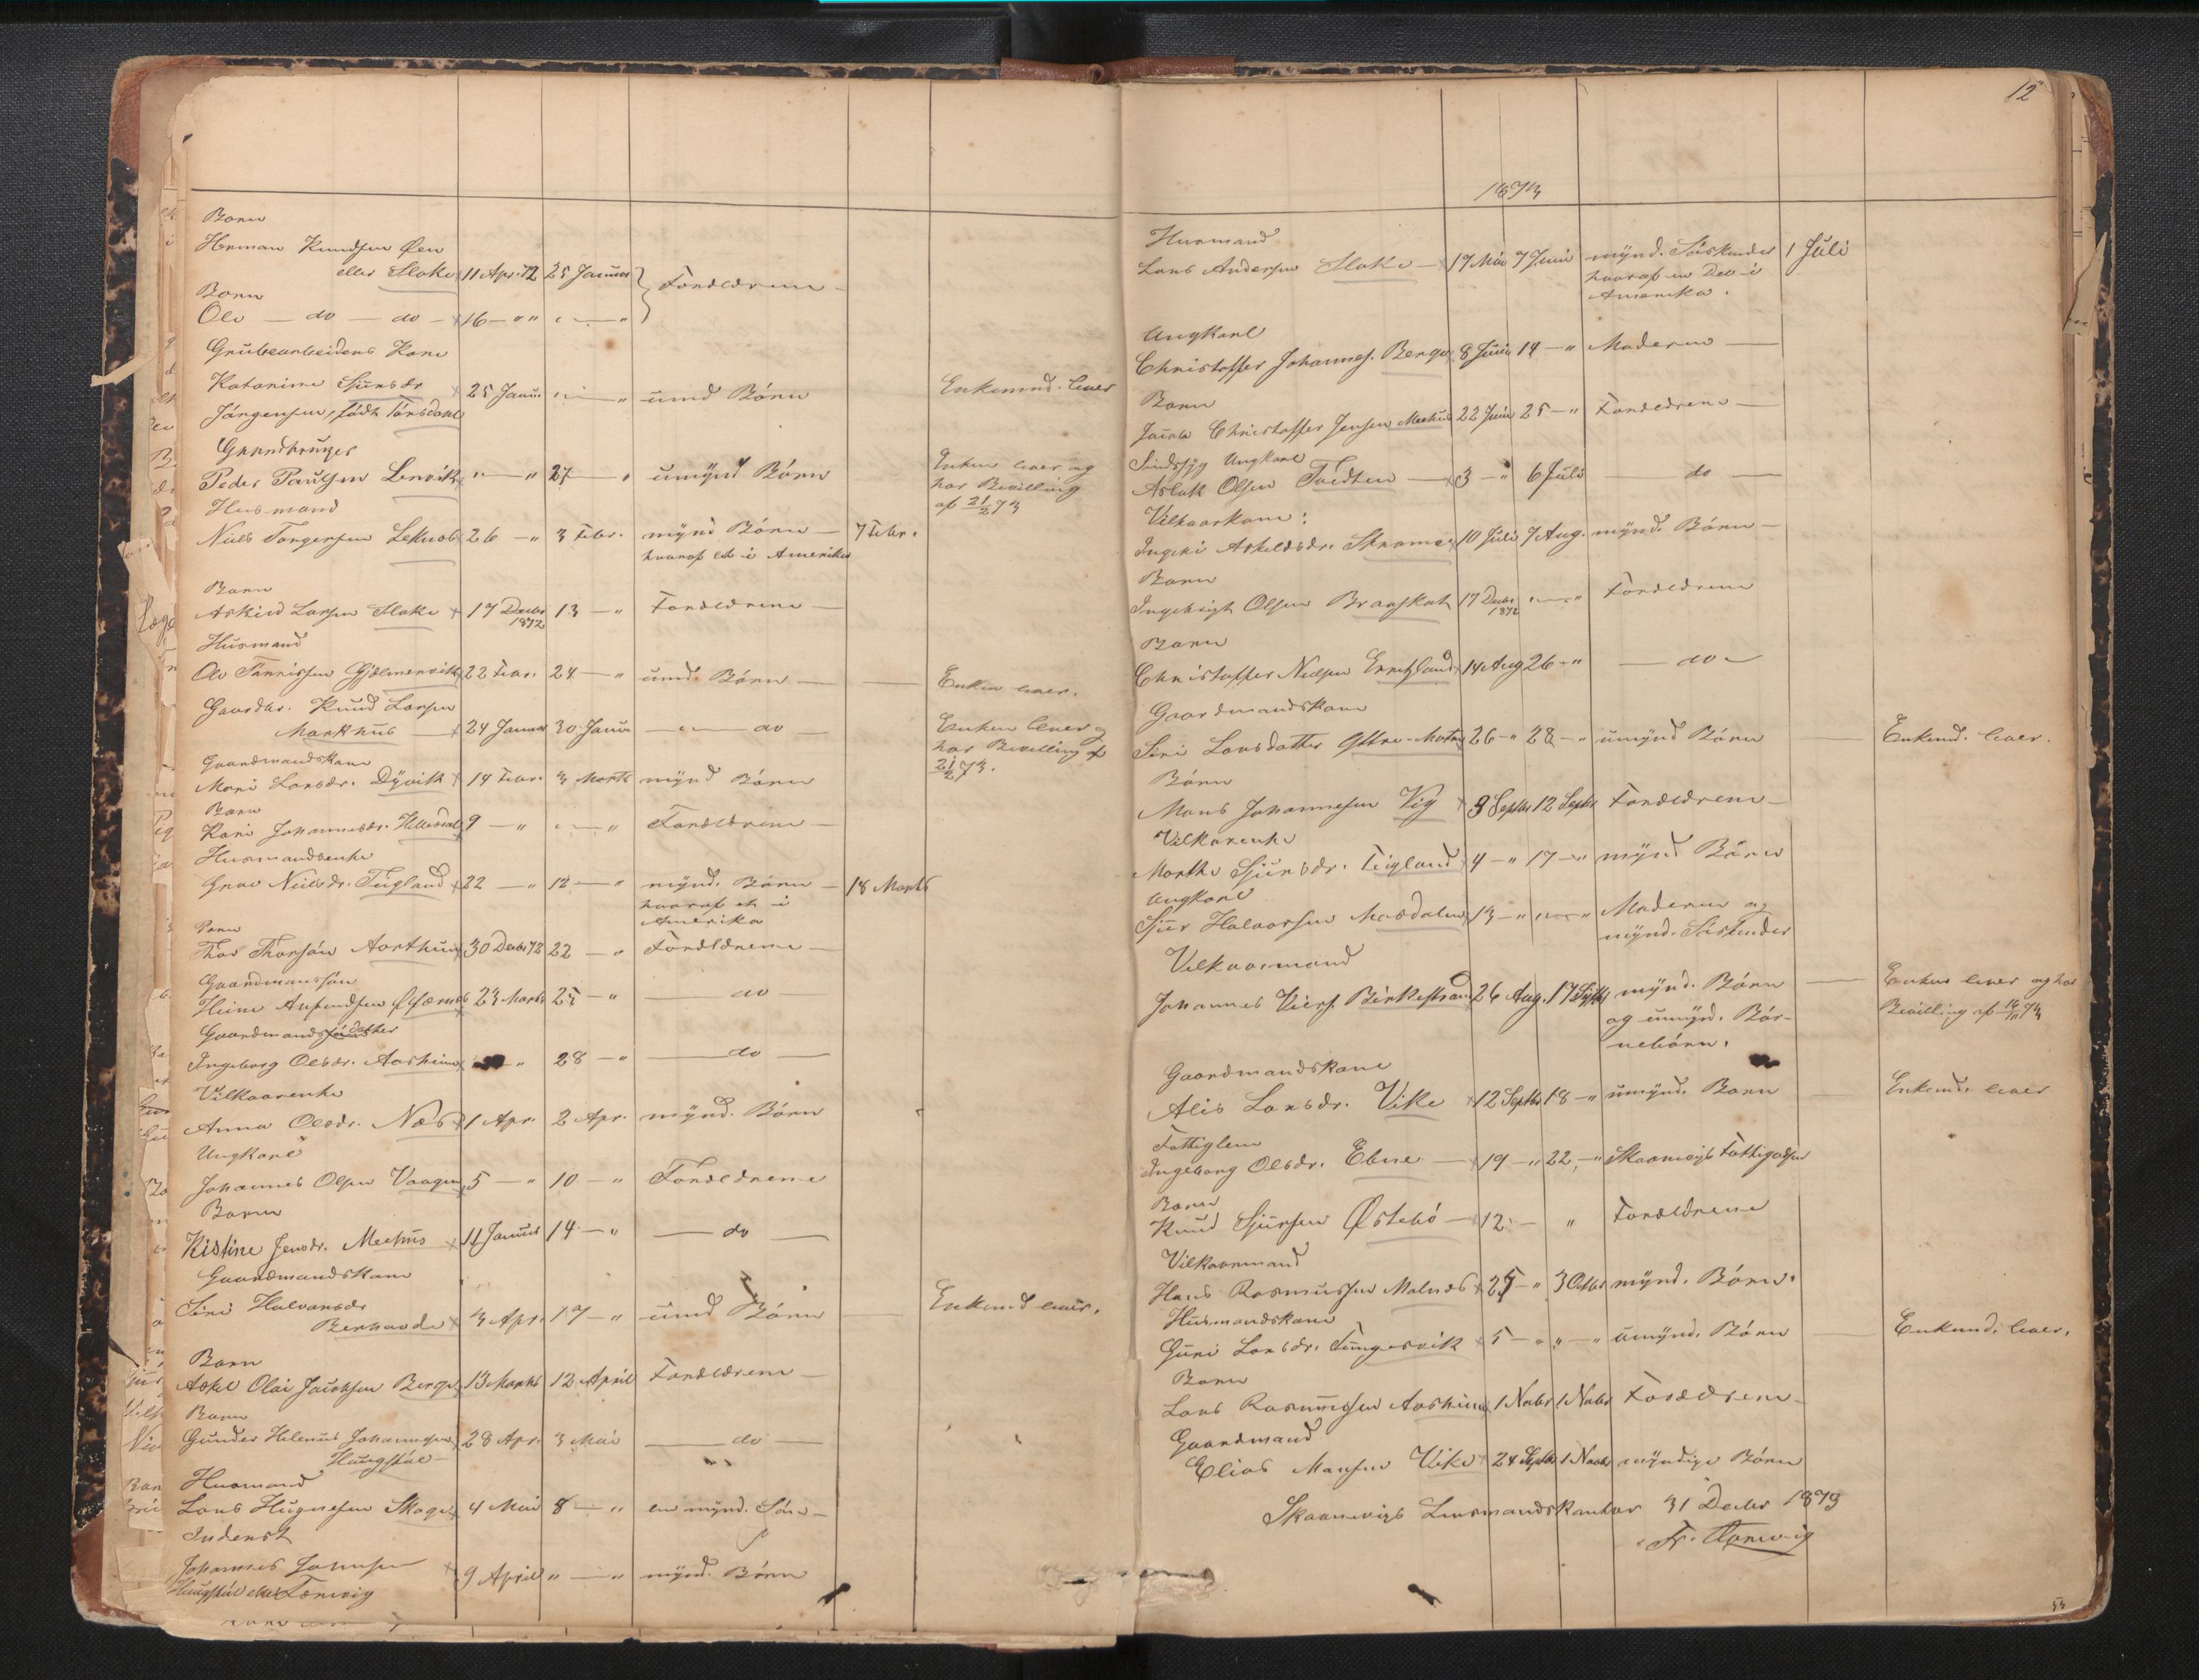 Barn
Herman Knudsen Øen
eller Flake 11 Apr. 72 25 Januar Forældrene
Barn
Ole — do — do — 16 — " "
Grubearbeiders Kone
Katarine Sjursdr 25 Januar " — " umd Børn Enkemd. lever
Jørgensen, født Tørsdahl
Gaardbruger
Peder Paulsen Lervik " — " 27 — " umynd Børn Enken lever og
har Bevilling
af 21/2 73
Husmand
Niels Torgersen Leknes 26 — " 3 Febr. mynd Børn — 7 Febr.
hvoraf et i Amerika
Barn
Askild Larsen Flake 17 Decbr 1872 13 — " Forældrene —
Husmand
Ole Tønnissen Gjelmervik 22 Febr. 24 — " umd. Børn — Enken lever.
Gaardbr. Knud Larsen
Markhus — 24 Januar 30 Januar — " — do Enken lever og
har Bevilling af
21/2 73.
Gaardmandskone
Mari Larsdr. Dyvik 14 Febr. 3 Marts mynd Børn
Barn
Kari Johannesdr. Hellesdal 9 — " " — " Forældrene —
Husmandsenke
Gro Nielsdr. Teigland 22 — " 12 — " mynd. Børn — 18 Marts
hvoraf et i
Amerika
Barn
Thor Thorsen Aarthun 30 Decbr 72 22 — " Forældrene —
Gaardmanssøn
Heine Amundsen 23 Marts 25 — " — do —
Gaardmandsdatter
Ingeborg Olsdr. Aasheim " 28 — " — do —
Vilkaarenke
Anna Olsdr. Næs 1 Apr. 2 Apr. mynd. Børn
Ungkarl
Johannes Olsen Vaagen 5 — " 10 — " Forældrene
Barn
Kistine Jensdr. Meehus 11 Januar 14 — " — do —
Gaardmandskone
Siri Halvorsdr
3 Apr. 17 — " umd Børn — Enkemd lever.
Barn
Askel Olai Jacobsen Berge 13 Marts 12 April Forældrene —
Barn
Gunder Helenus Johannesen 28 Apr. 3 Mai — do —
Haugstøl —
Husmand
Lars Hugnesen Skoge 4 Mai 8 — " en mynd. Søn —
Inderst
Johannes Johnsen 9 April " — " mynd. Børn
Haugstøl eller Tærvig
12
1873
Husmand
Lars Andersen Flake — 17 Mai 7 Juni mynd. Søskender 1 Juli
hvoraf en Del i
Amerika.
Ungkarl
Christoffer Johannes. Berge 8 Juni 14 — " Moderen —
Barn
Jacob Christoffer Jensen Meehus 22 Juni 25 — " Forældrene —
Sindssyg Ungkarl
Aslak Olsen Tvedten — 3 — " 6 Juli — do —
Vilkaarkone:
Askeldsdr. 10 Juli 7 Aug. mynd. Børn —
Barn
Ingebrigt Olsen 17 Decbr 1872 " — " Forældrene
Barn
Christoffer Nielsen 14 Aug 26 — " — do —
Gaardmandskone
Siri Larsdatter Yttre-Matre 26 — " 28 — " umynd Børn — Enkemd. lever.
Barn
Mons Johannesen Vig 9 Septbr 12 Septbr Forældrene —
Vilkarenke
Marthe Sjursdr. Teigland 4 — " 17 — " mynd Børn
Ungkarl
Sjur Halvorsen Mosdalen 13 — " " — " Moderen og
mynd. Søskender
Vilkaarmand
Johannes Birkestrand 26 Aug. 17 Septbr mynd. Børn — Enken lever og har
og umynd. Bør- Bevilling af 14/11 73
nebørn.
Gaardmandskone
Alis Larsdr. Vike 12 Septbr 18 — " umynd. Børn — Enkemd. lever
Fattiglem
Ingeborg Olsdr. Ebne — 19 — " 22 — " Skaanevigs Fattigvæsen
Barn
Knud Sjursen Østebø — 12 — " Forældrene
Vilkaarmand
Hans Rasmussen Malnes 25 — " 3 Octbr mynd. Børn.
Husmandskone
Guri Larsdr. Tungesvik 5 — " " — " umynd. Børn — Enkemd. lever.
Barn
Lars Rasmussen Aasheim 1 Novbr 1 Novbr Forældrene —
Gaardmand
Elias Monsen Vike 24 Septbr 1 Novbr myndige Børn
Skaanevigs Lensmandskontor 31 Decbr 1873
53